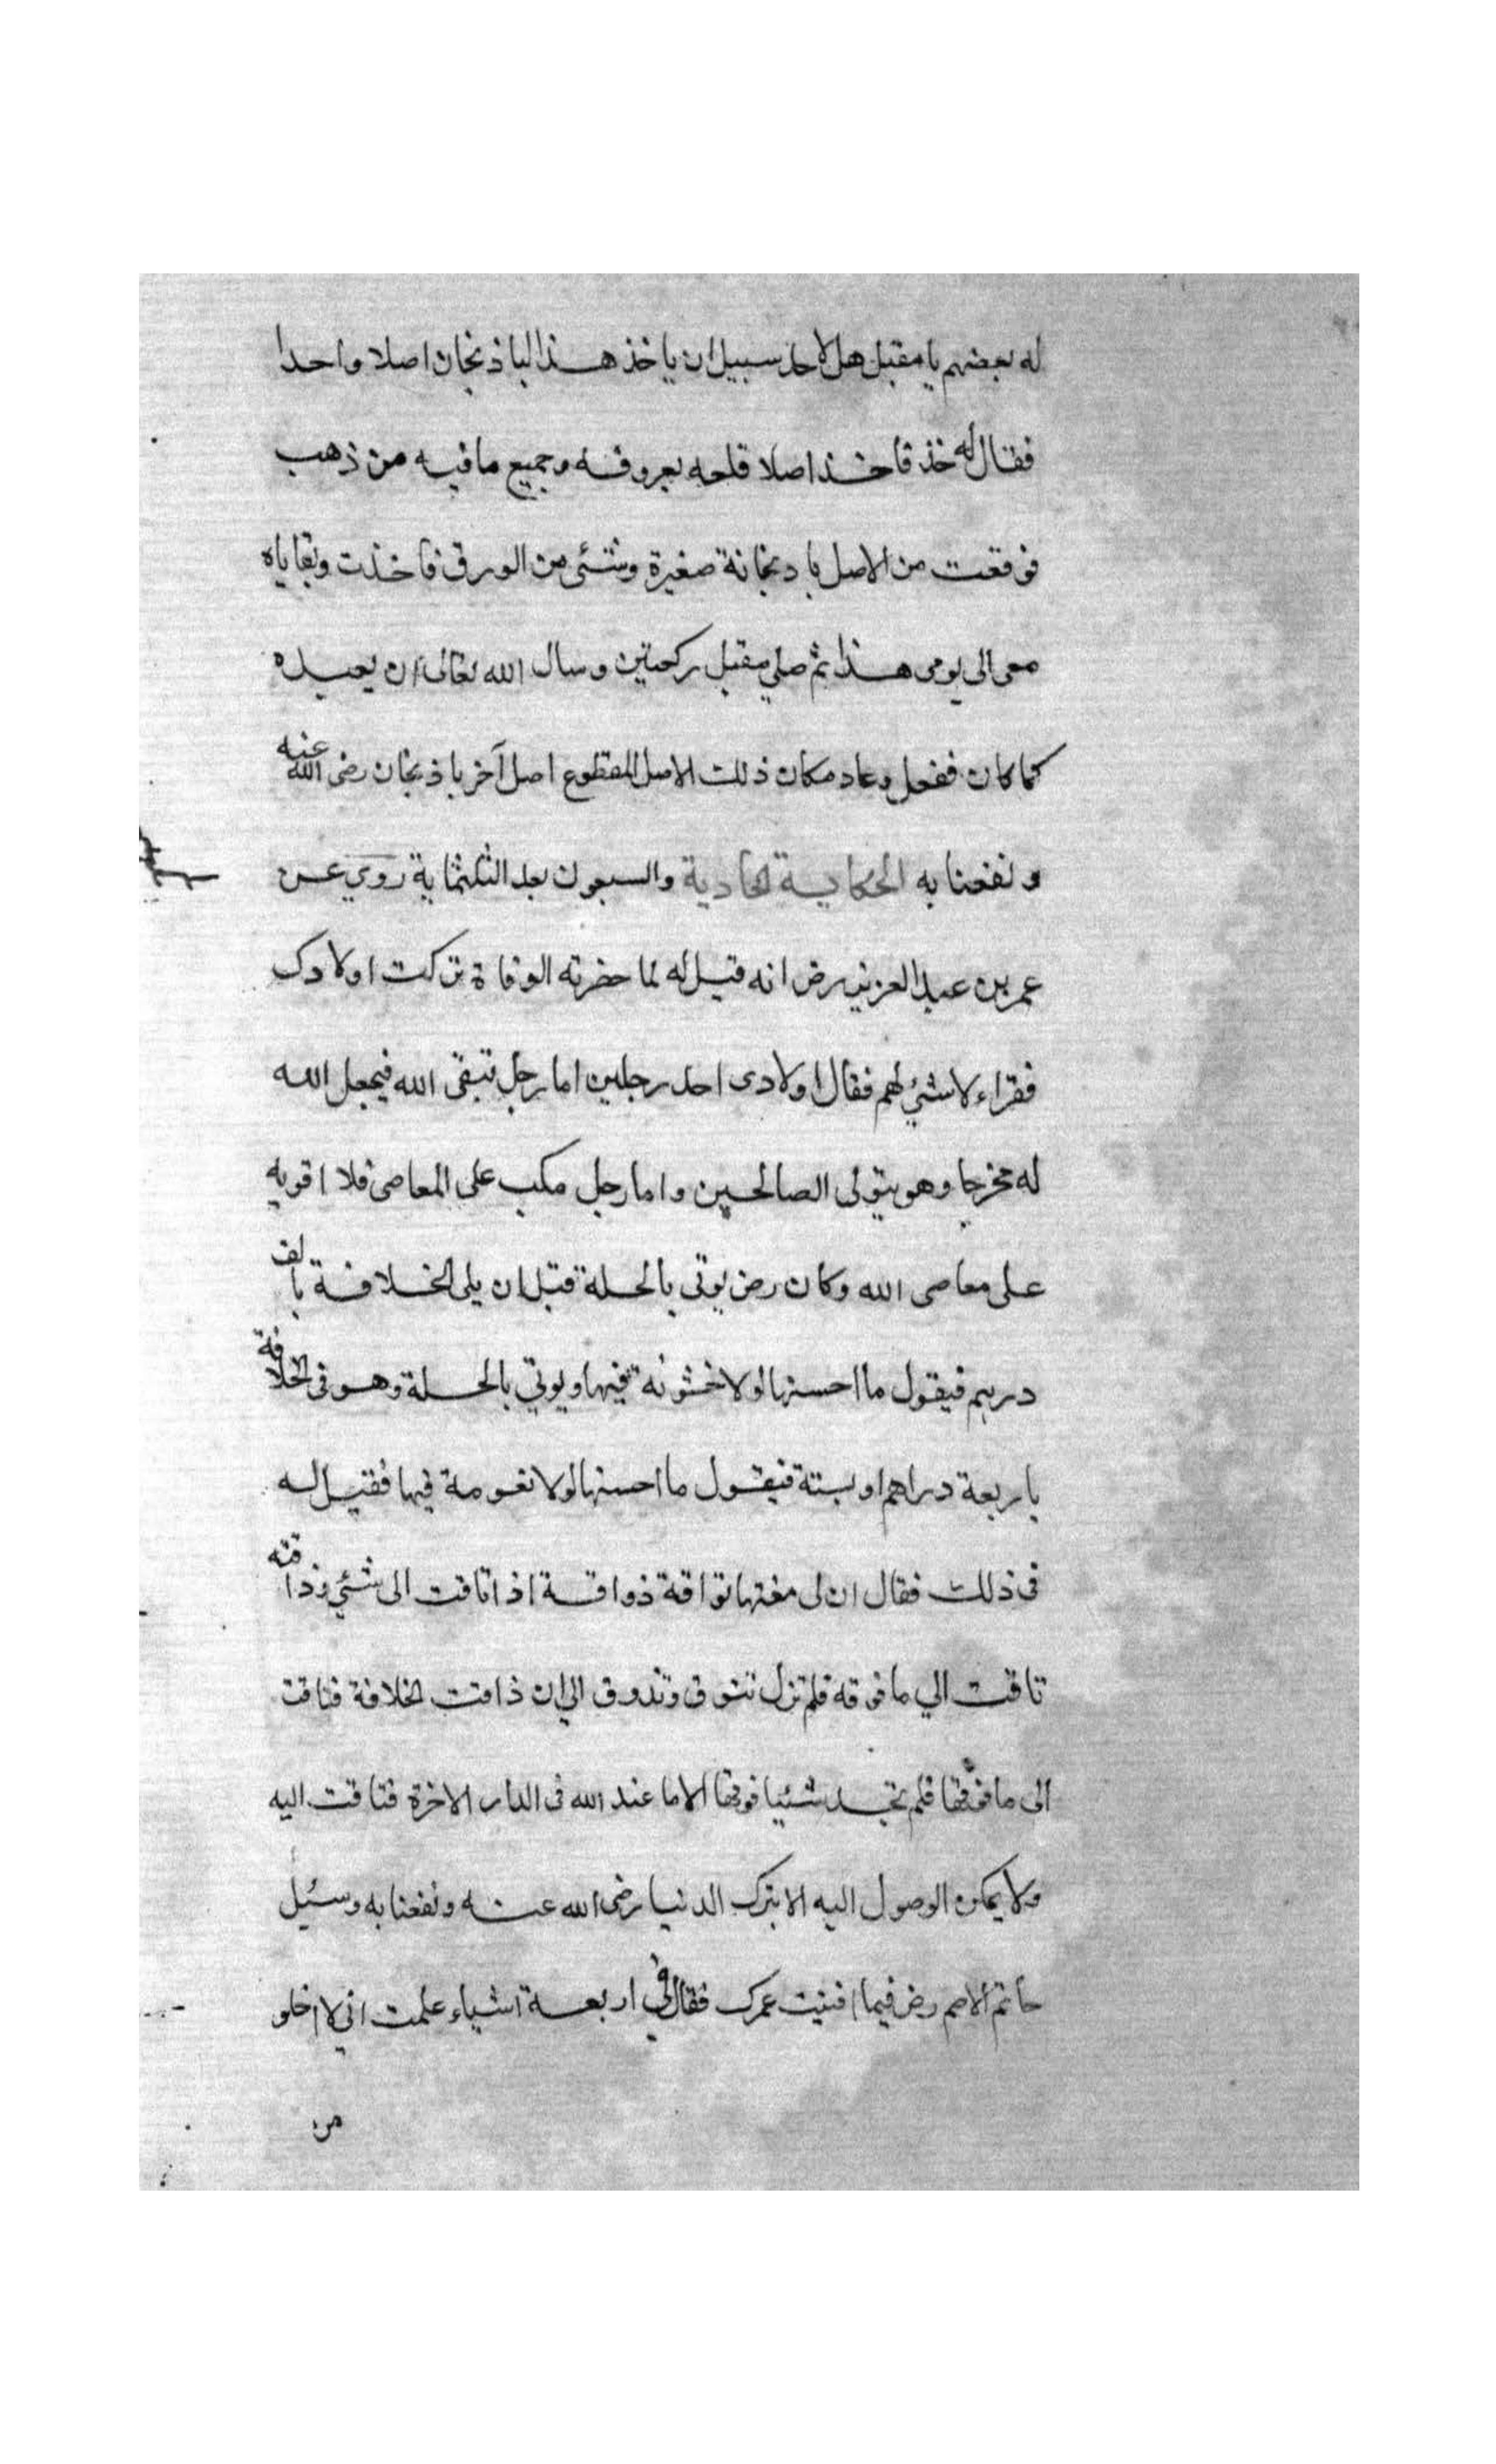 له بعضهم يا مقبل هل لاحد سبيل ان ياخذ هذا الباذنجان اصلا واحدا
فقال له خذ فاخذ اصلا قلعه بعروقه وجميع ما فيه من ذهب
فوقعت من الاصل بادنجانة صغيرة وشئى من الورق فاخذت وبقاياه
معى الى يومى هذا ثم صلي مقبل ركعتين وسال الله تعالى ان يعيده
كما كان ففعل وعاد مكان ذلك الاصل المقطوع اصل آخر باذنجان رضى الله عنه
ونفعنا به الحكاية الحادية والسبعون بعد الثلثماية روي عن
عمر بن عبد العزيز رض انه قيل له لما حضرته الوفاة تركت اولادك
فقراء لا شئي لهم فقال اولادى احد رجلين اما رجل يتقى الله فيجعل الله
له مخرجا وهو يتولى الصالحين واما رجل مكب على المعاصى فلا اقويه
على معاصى الله وكان رض يوتى بالحلة قبل ان يلى الخلافة بالف
درهم فيقول ما احسنها لولا خشونة فيها ويوتي بالحلة وهو فى الخلافة
باربعة دراهم او بستة فيقول ما احسنها لولا نعومة فيها فقيل له
فى ذلك فقال ان لى تواقة ذواقة اذا تاقت الى شئي وذاقته
تاقت الي ما فوقه فلم تزل تتوق وتذوق الي ان ذاقت الخلافة فتاقت
الى ما فوقها فلم تجد شئيا فوقها الا ما عند الله فى الدار الاخرة فتاقت اليه
ولا يمكن الوصول اليه الا بترك الدنيا رضى الله عنه ونفعنا به وسئيل
حاتم الاصم رض فيما افنيت عمرك فقال في اربعة اشياء علمت انى لا اخلو
من